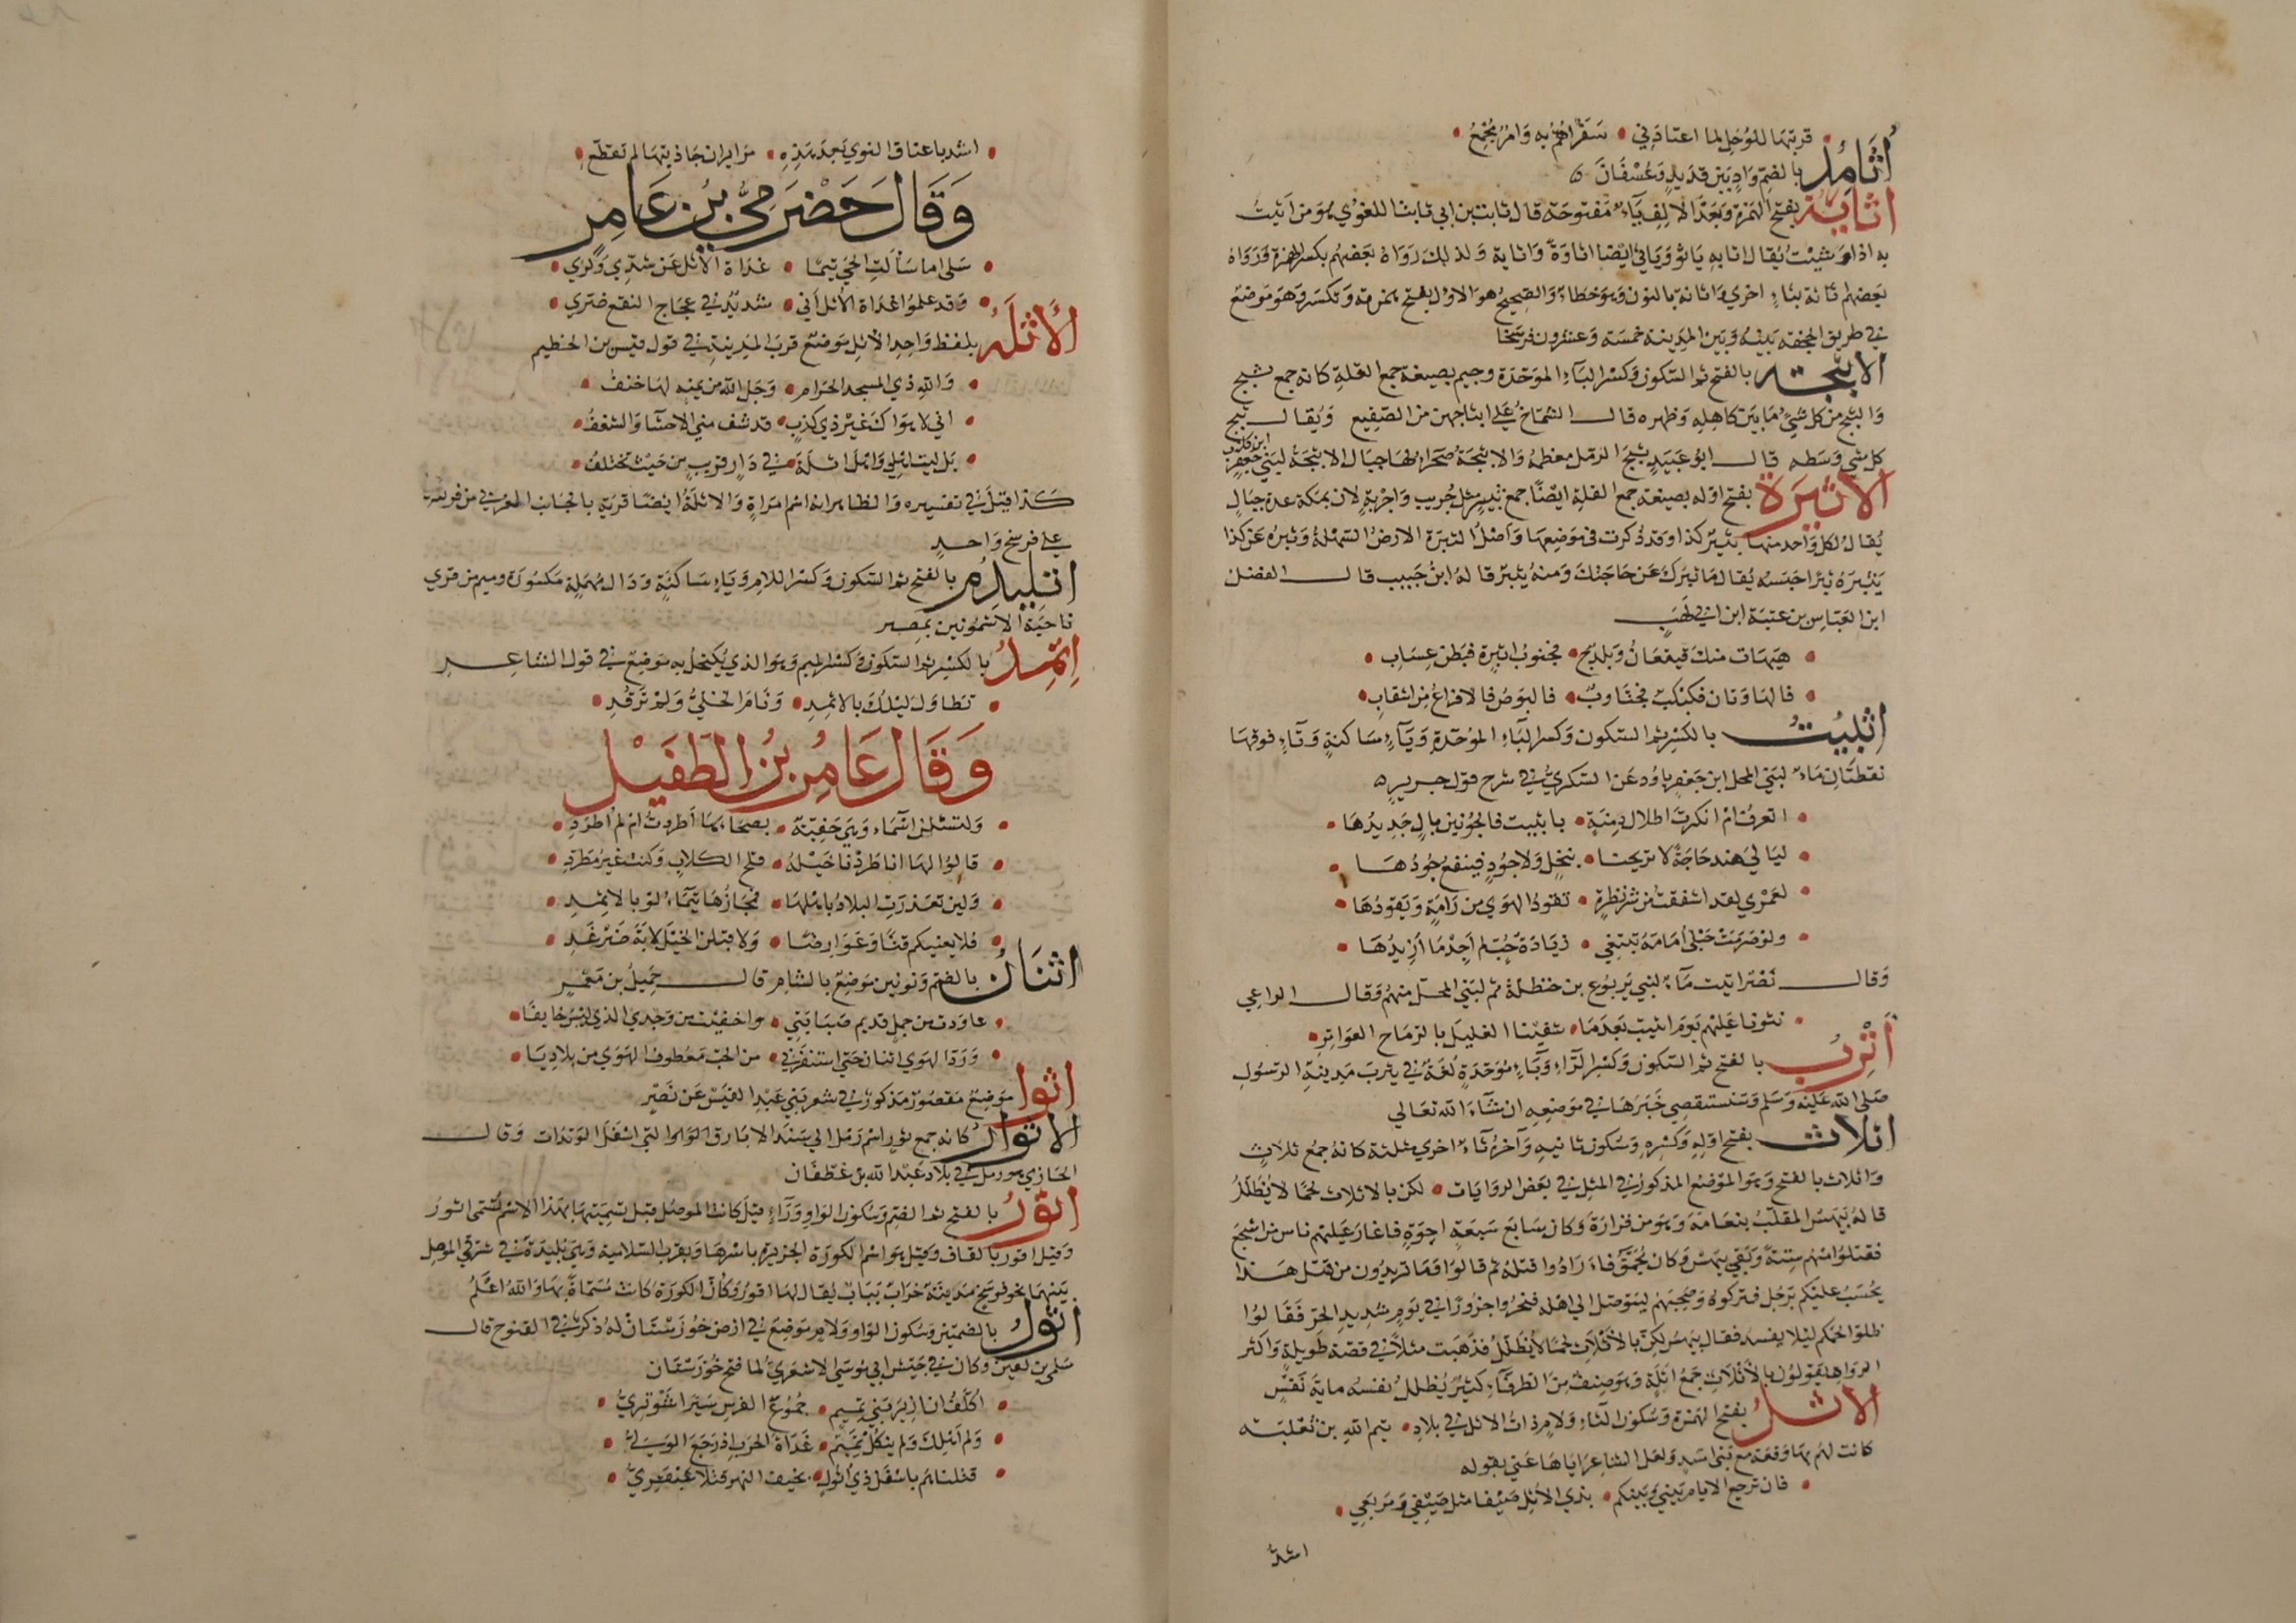 قربتها للرحل لما اعتادني • سفر اهم به وامر مجمع •
أثامد بالضم واد بين قديد وعسفان
أثاية بفتح الهمزة وبعد الالف ياء مفتوحة قال ثابت بن ابي ثابت اللغوي هو من اثيت
به اذا وشيت يقال اثا به ياثو وياثي ايضا اثاوة واثاية ولذلك رواه بعضهم بكسر الهمزة ورواه
بعضهم اثاثة بثاء اخري واثانة بالنون وهو خطاء والصحيح هو الاول بفتح همزته وتكسر وهو موضع
في طريق الجحفة بينه وبين المدينة خمسة وعشرون فرسخا
الاثبجة بالفتح ثم السكون وكسر الباء الموحدة وجيم بصيغة جمع القلة كانه جمع ثبج
والثبج من كل شيء ما بين كاهله وظهره قال الشماخ علي اثباجهن من الصقيع ويقال ثبج
كل شي وسطه قال ابو عبيد ثبج الرمل معظمه والاثبجة صحراء لها جبال الاثبجة لبني جعفر
ابن كلاب
الاثبرة بفتح اوله بصيغة جمع القلة ايضا جمع ثبير مثل جريب واجربة لان بمكة عدة جبال
يقال لكل واحد منها ثبير كذا وقد ذكرت في موضعها واصل الثبرة الارض السهلة وثبره عن كذا
يثبره ثبرا حبسه يقال ما ثبرك عن حاجتك ومنه ثبير قاله ابن حبيب قال الفضل
ابن العباس بن عتبة ابن ابي لهب
• هيهات منك قيقعان وبلدح • فجنوب اثبرة فبطن عساب •
• فالهاوتان فكبكب فجتاوب • فالبوص فالافراع من اشقاب •
اثبيت بالكسر ثم السكون وكسر الباء الموحدة وياء ساكنة وتاء فوقها
نقطتان ماء لبني المحل ابن جعفر باود عن السكري في شرح قول جرير
• اتعرف ام انكرت اطلال دمنة • باثبيت فالجونين بال جديدها •
• ليالي هند حاجة لا تريحنا • ببخل ولا جود فينفع جودها •
• لعمري لقد اشفقت من شر نظرة • تقود الهوي من رامة ويقودها •
• ولو صرمت حبلي امامة تبتغي • زيادة حب لم اجد ما ازيدها •
وقال نصر اثبيت ماء لبني يربوع بن حنظلة ثم لبني المحل منهم وقال الراعي
• نثرنا عليهم يوم اثبيت بعدما • شفينا الغليل بالرماح العواتر •
أثرب بالفتح ثم السكون وكسر الراء وباء موحدة لغة في يثرب مدينة الرسول
صلى الله عليه وسلم وسنستقصي خبرها في موضعه ان شاء الله تعالي
اثلاث بفتح اوله وكسره وسكون ثانيه وآخره ثاء اخري مثلثة كانه جمع ثلاث
واثلاث بالفتح وهو الموضع المذكور في المثل في بعض الروايات • لكن بالاثلاث لحما لا يظلل
قاله بيهس الملقب بنعامة وهو من فزارة وكان سابع سبعة اخوة فاغار عليهم ناس من اشجع
فقتلوا منهم ستة وبقي بيهس وكان يحمق فارادوا قتله ثم قالوا وما تريدون من قتل هذا
يحسب عليكم برجل فتركوه وصحبهم ليتوصل الي اهله فنحروا جزورا في يوم شديد الحر فقالوا
ظللوا لحمكم ليلا يفسد فقال بيهس لكن بالاثلاث لحما لا يظلل فذهبت مثلا في قصة طويلة واكثر
الرواة يقولون بالاثلاث جمع اثلة وهو صنف من الطرفاء كثير يظلل نفسه ماية نفس
الاثل بفتح الهمزة وسكون الثاء ولام ذات الاثل في بلاد • تيم الله بن ثعلبة
كانت لهم بها وقعة مع بني اسد ولعل الشاعر اياها عني بقوله
• فان ترجع الايام بيني وبينكم • بذي الاثل صيفا مثل صيفي ومربعي •
اشد
• اشد باعناق النوي بعد هذه • مراير ان جاذبتها لم تقطع •
وقال حضرمي بن عامر
• سلي اما سألت الحي تيما • غداة الاثل عن شدي وكري •
• وقد علموا غداة الاثل اني • شديد في عجاج النقع ضري •
الأثلة بلفظ واحد الاثل موضع قرب المدينة في قول قيس بن الخطيم
• والله ذي المسجد الحرام • وجل الله من يمنه لها خنف •
• اني لاهواك غير ذي كذب • قد شف مني الاحشا والشغف •
• بل ليت اهلي واهل اثلة • في دار قريب من حيث تختلف •
كذا قيل في تفسيره والظاهر انه اسم امراة والاثلة ايضا قرية بالجانب الغربي من
علي فرسخ واحد
اثليدم بالفتح ثم السكون وكسر اللام وياء ساكنة ودال مهملة مكسورة وميم من قري
ناحية الاشمونين بمصر
إثمد بالكسر ثم السكون وكسر الميم وهو الذي يكتحل به موضع في قول الشاعر
• تطاول ليلك بالاثمد • ونام الخلي ولم ترقد •
وقال عامر بن الطفيل
• ولتسئلن اسماء وهي حفية • نصحاءها أطردت ام لم اطرد •
• قالوا لها انا طردنا خيله • قلح الكلاب وكنت غير مطرد •
• ولين تعذرت البلاد باهلها • فمجازها تيماء او بالاثمد •
• فلابغينكم قنا وعوارضا • ولاقبلن الخيل لابة ضرغد •
اثنان بالضم ونونين موضع بالشام قال جميل بن معمر
• عاودت من جمل قديم صبابتي • واخفيت من وجدي الذي ليس خافيا •
• ورد الهوي اثنان حتي استنفزني • من الحب معطوف الهوي من بلاديا •
اثوا موضع مقصور مذكور في شعر بني عبد القيس عن نصر
الاثوار كانه جمع ثور اسم رمل الي سند الابارق التي اسفل الوتدات وقال
الحازمي هو رمل في بلاد عبد الله بن غطفان
اثور بالفتح ثم الضم وسكون الواو وراء قيل كانت الموصل قبل تسميتها بهذا الاسم تسمي اثور
وقيل اقور بالقاف وقيل هو اسم لكورة الجزيرة باسرها وبقرب السلامية وهي بليدة في شرقي الموصل
بينهما نحو فرسخ مدينة خراب يباب يقال لها اقور وكان الكورة كانت مسماة بها والله اعلم
اثول بالضمتين وسكون الواو ولام موضع في ارض خوزستان له ذكر في الفتوح قال
سلمي بن القين وكان في جيش ابي موسي الاشعري لما فتح خوزستان
• اكلف ان ازير بني تميم • جموع الفرس سيرا شوتريا •
• ولم اهلك ولم ينكل تميم • غداة الحرب اذ رجع الوليا •
• قتلناهم باسفل ذي اثول • بخيف النهر قتلا عبقريا •